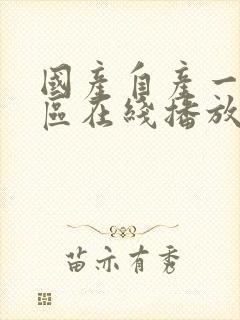 國產自產一
區在綫播放
苗亦有秀